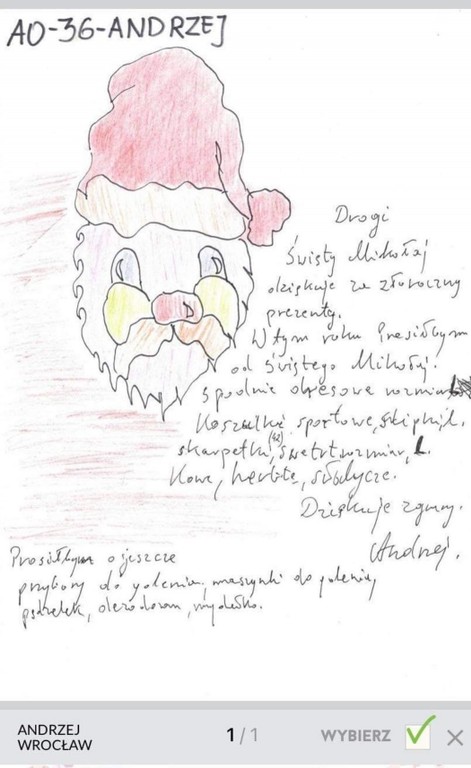 AO-36-ANDRZEJ
Drogi
Święty Mikołaj
dziękuje za złoroczny
prezenty.
W tym roku Prosiłbym
od Świętego Mikołaj.
spodnie dresowe rozmiar L
Koszulki sportowe, L.
skarpetki, (42) swetr rozmiar, L.
Kawe, herbte, słodycze.
Dziękuje z gury.
Andrzej.
Prosiłbym o jeszcze
przybory do golenia, maszynki do golenia,
dezodoran, mydełko.
ANDRZEJ
WROCŁAW
1 / 1
WYBIERZ